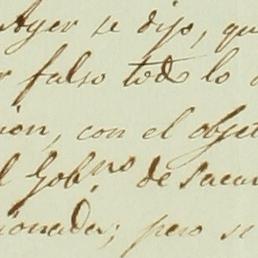 Ayer se dijo, qu
r falso todo lo
ion, con el objet
l Gob.no de Sacar
ionada; pero se